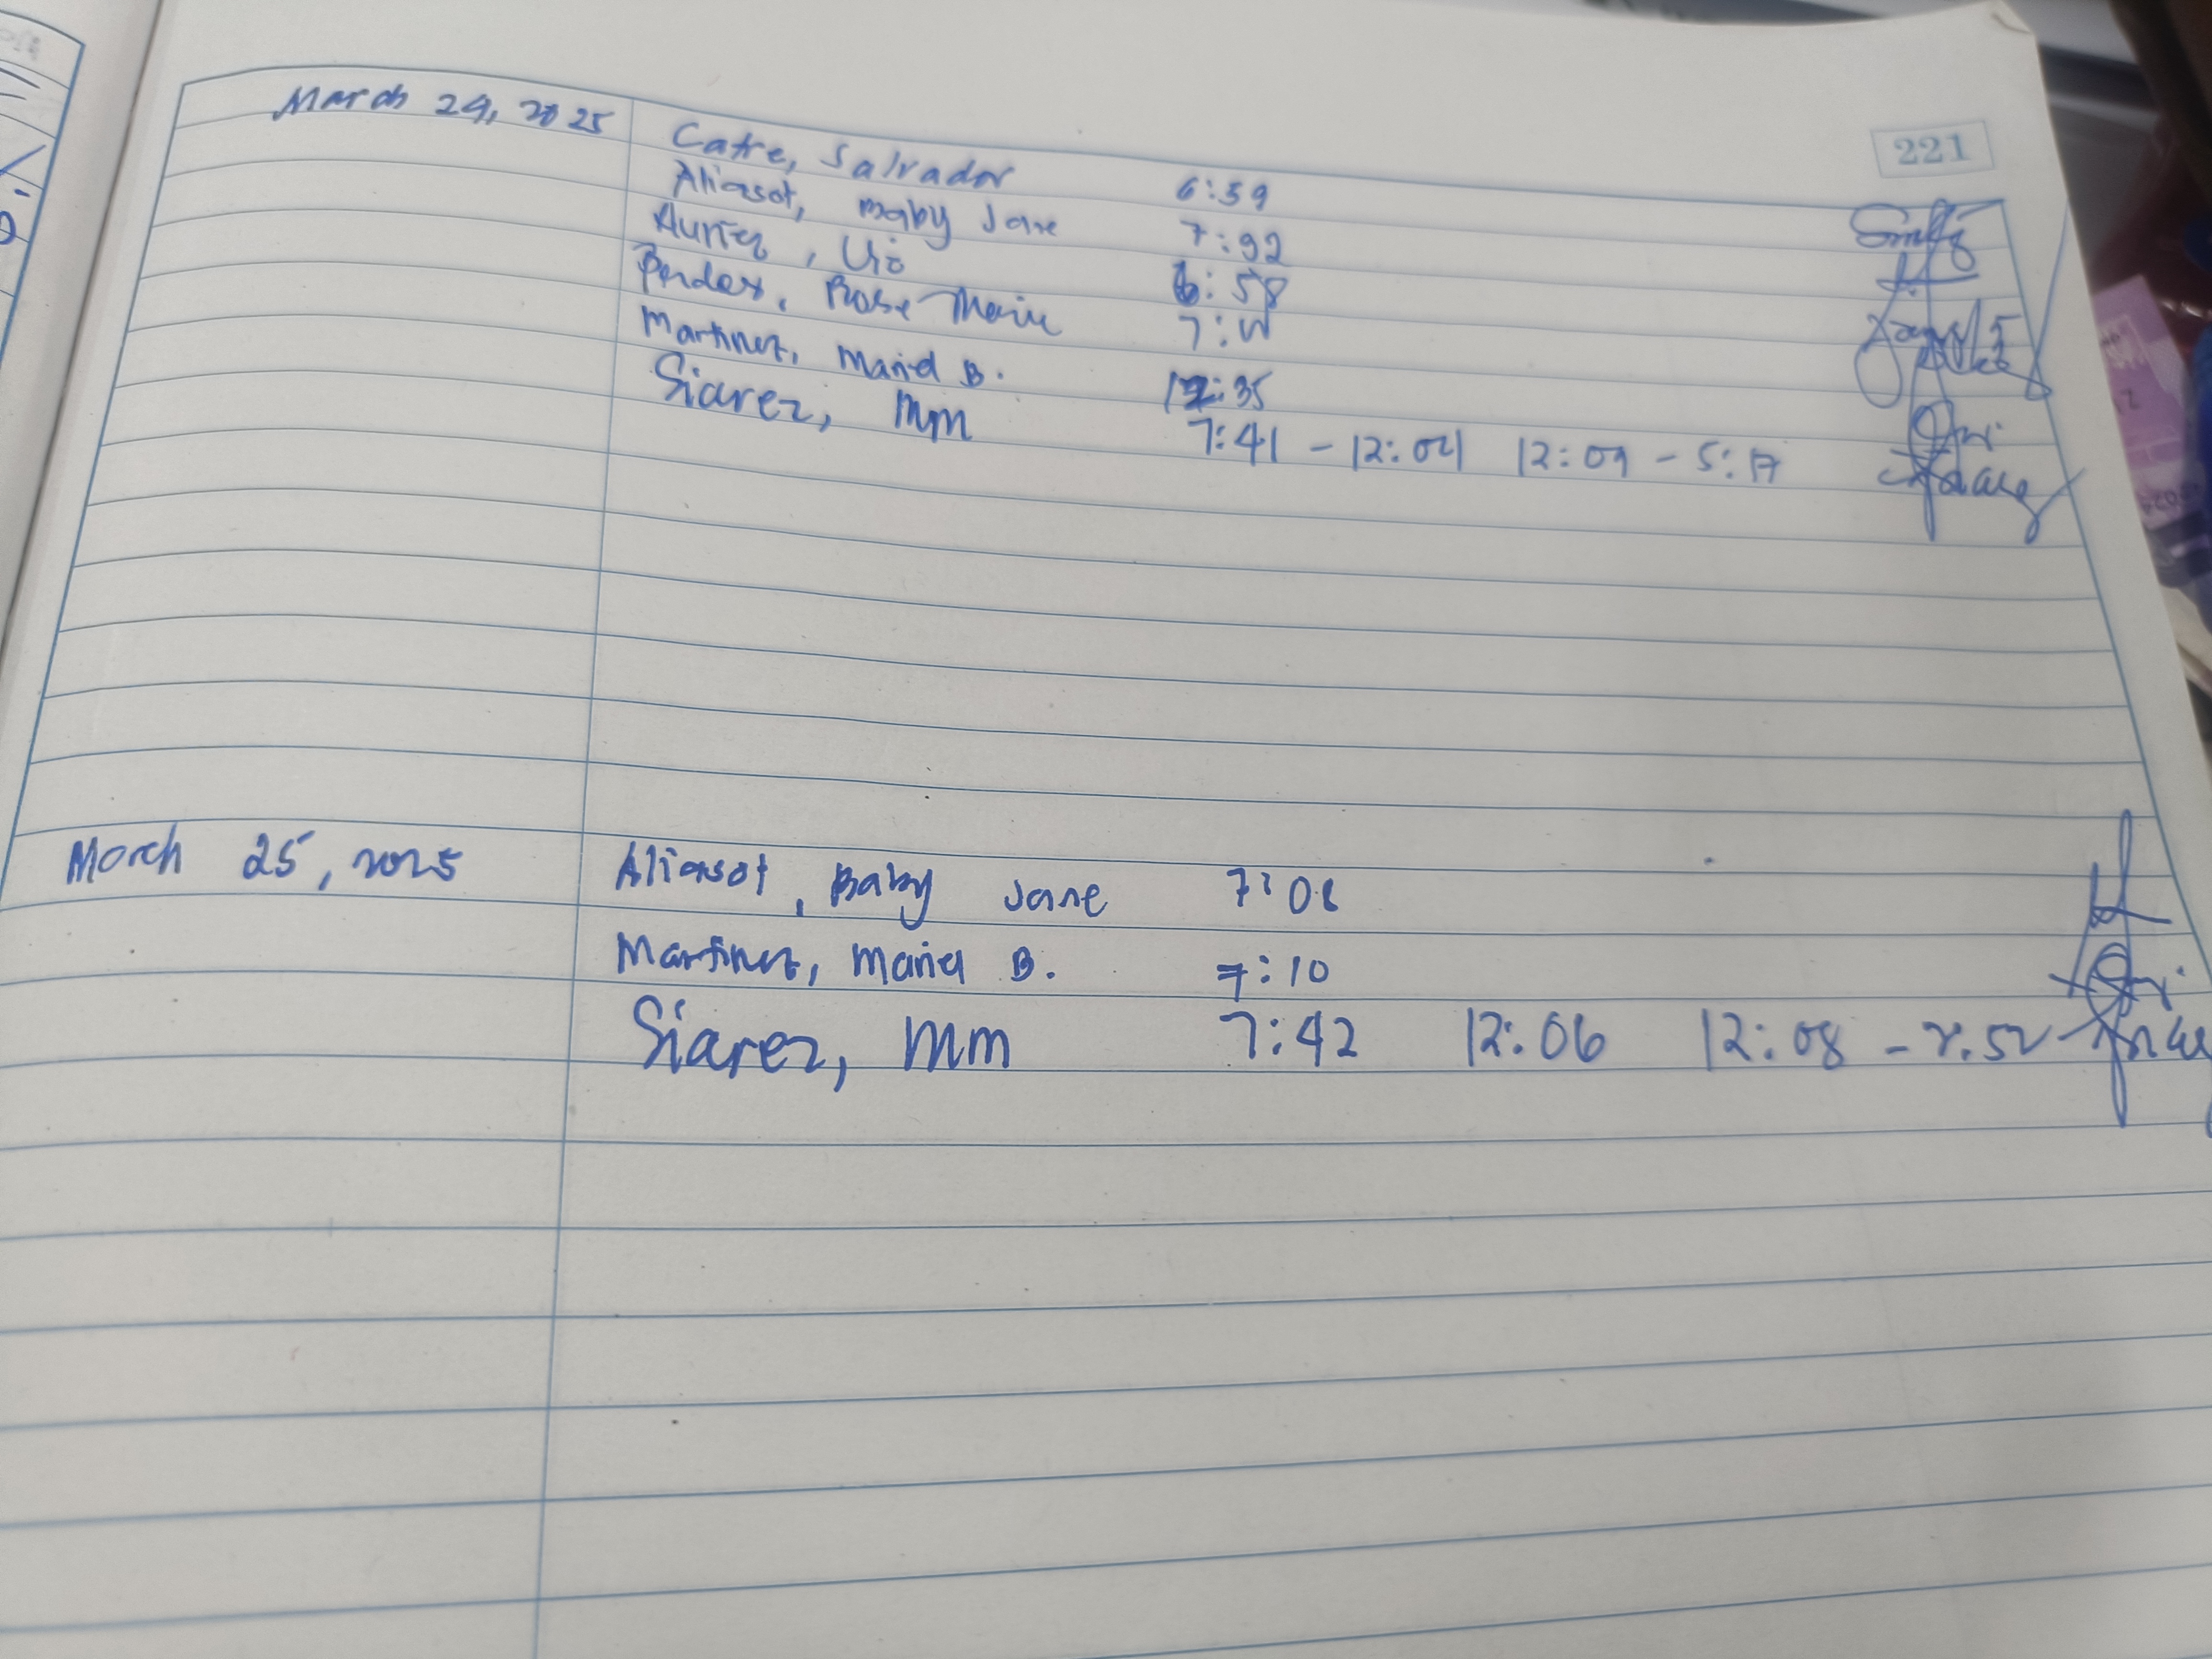 221
March 24, 2025 Catre, Salvador 6:59
Aliasot, Baby Jane 7:92
Auriez, Vic 6:58
Rose Marie 7:
Martinez, Mariel B. 12:35
Siarez, MM 7:41 - 12:04 12:09 - 5:17
March 25, 2025 Aliasot, Baby Jane 7:08
Martinez, Mariel B. 7:10
Siarez, MM 7:42 12:06 12:08 -